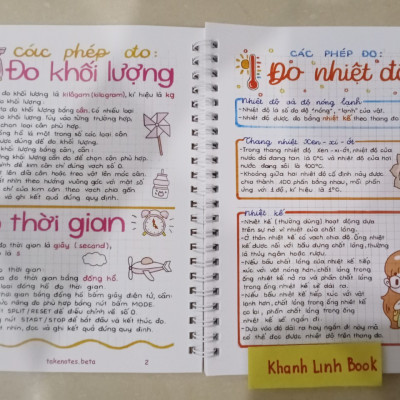 các phép đo:
Đo khối lượng
đo khối lượng là kilôgam (kilogram), kí hiệu là kg
đo khối lượng bằng cân. Có nhiều loại
đo khối lượng. Tùy vào từng trường hợp,
chọn loại cân phù hợp.
đồng hồ là một trong số các loại cân
được dùng để đo khối lượng.
lượng bằng cân, cần:
lượng khối lượng cần đo để chọn cân phù hợp.
chỉnh để kim cân chỉ đúng vạch số 0.
vật lên đĩa cân hoặc treo vật lên móc cân.
mắt nhìn theo hướng vuông góc với mặt số
chỉ của kim cân theo vạch chia gần
và ghi kết quả đúng quy định.
o thời gian
đo thời gian là giây (second),
là s.
thời gian:
đo thời gian bằng đồng hồ.
loại đồng hồ đo thời gian.
thời gian bằng đồng hồ bấm giây điện tử, cần:
chức năng đo phù hợp bằng nút bấm MODE.
nút SPLIT / RESET để điều chỉnh về số 0.
nút START / STOP để bắt đầu và kết thúc đo.
nhìn, đọc và ghi kết quả đúng quy định.
takenotes.beta
2
CÁC PHÉP ĐO:
Đo nhiệt độ
Nhiệt độ và độ nóng lạnh
Nhiệt độ là số đo độ "nóng", "lạnh" của vật.
Nhiệt độ được đo bằng nhiệt kế theo thang đo
Thang nhiệt độ Xen-xi-ớt
Trong thang nhiệt độ Xen-xi-ớt, nhiệt độ của
nước đá đang tan là 0°C và nhiệt độ của hơi
nước đang sôi là 100°C.
Khoảng giữa hai nhiệt độ cố định này được
chia thành 100 phần bằng nhau, mỗi phần
ứng với 1 độ, kí hiệu là 1°C.
Nhiệt kế
Nhiệt kế (thường dùng) hoạt động dựa
trên sự nở vì nhiệt của chất lỏng.
Ở thân nhiệt kế có vạch chia độ. Ống nhiệt
kế được nối với bầu đựng chất lỏng, thường
là thủy ngân hoặc rượu.
Nếu bầu chất lỏng của nhiệt kế tiếp
xúc với vật nóng hơn, chất lỏng trong
ống nhiệt kế nở ra và phần chất lỏng
trong ống nhiệt kế sẽ dài ra.
Nếu bầu nhiệt kế tiếp xúc với vật
lạnh hơn, chất lỏng trong ống nhiệt kế
co lại, phần chất lỏng trong ống
nhiệt kế sẽ ngắn đi.
Dựa vào độ dài ra hay ngắn đi này mà
có thể đọc được nhiệt độ của vật
Khanh Linh Book